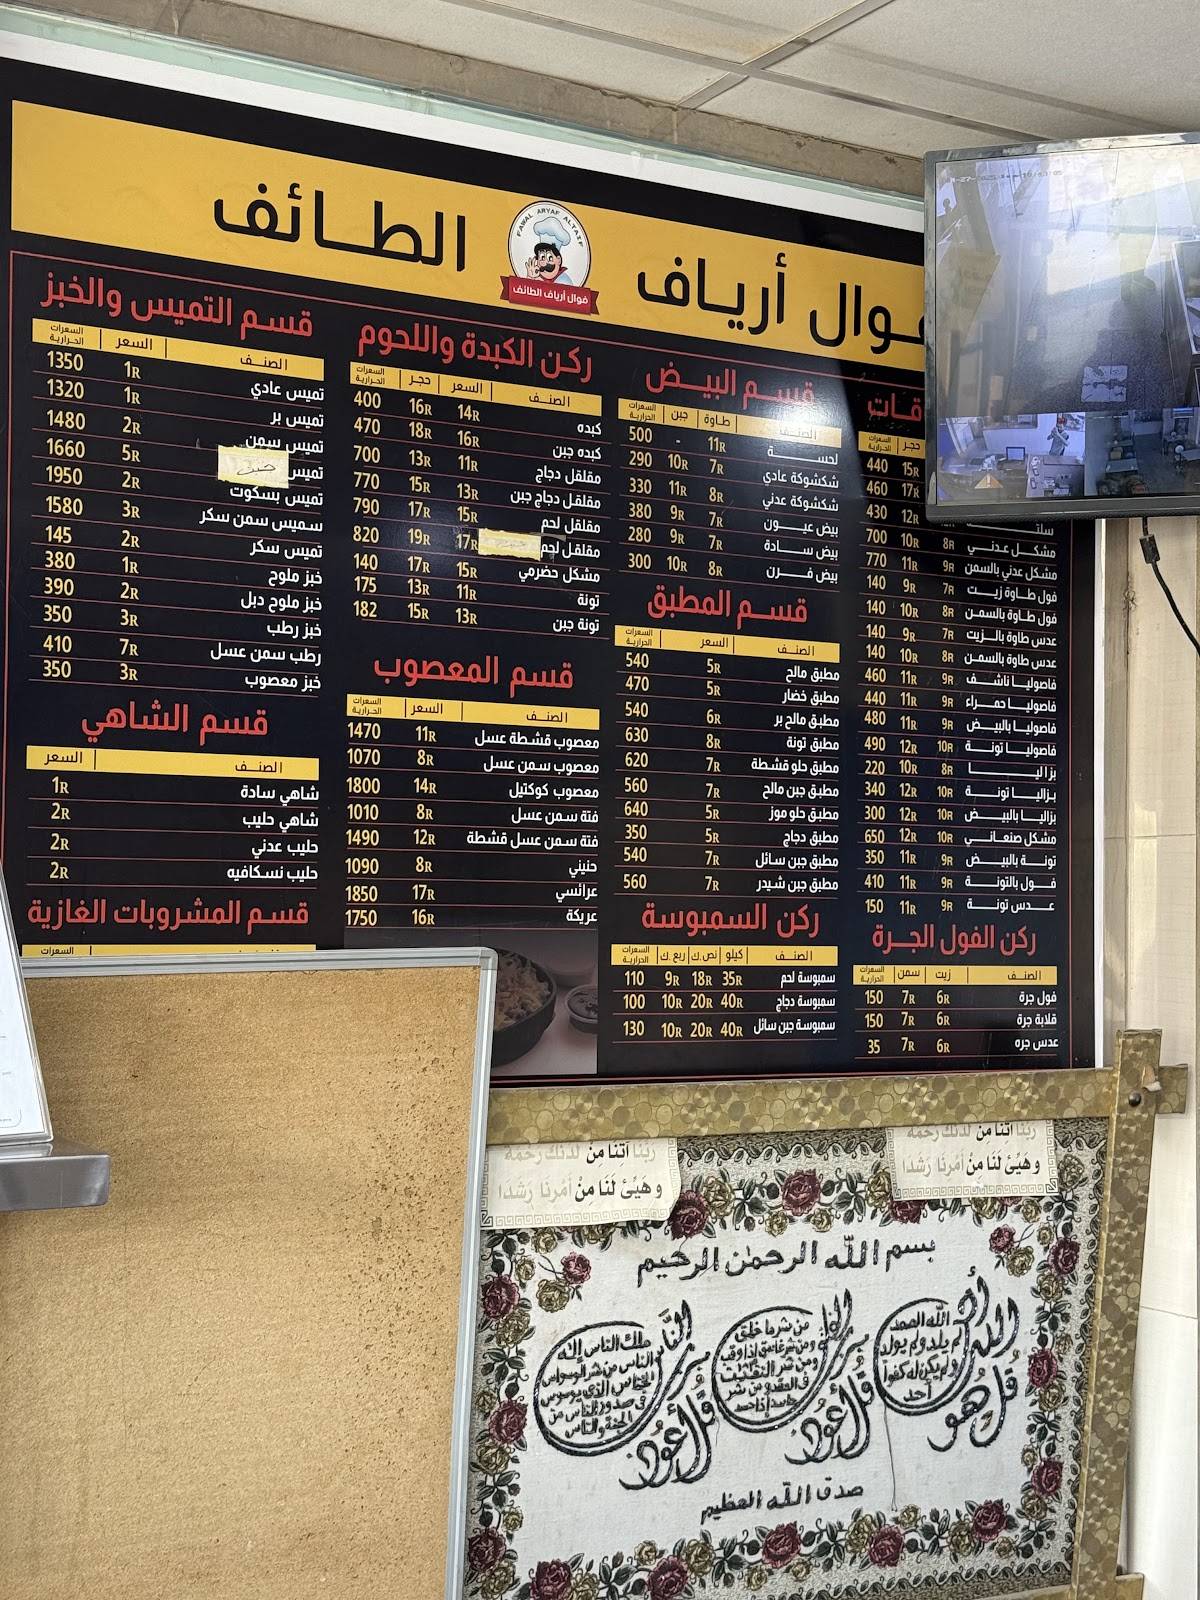 فوال أرياف الطائف
FAWAL ARYAF ALTAIF
فوال أرياف الطائف
قسم التميس والخبز
الصنف السعر السعرات الحرارية
تميس عادي 1R 1350
تميس بر 1R 1320
تميس سمن 2R 1480
تميس جبن 5R 1660
تميس بسكوت 2R 1950
سميس سمن سكر 3R 1580
تميس سكر 2R 145
خبز ملوح 1R 380
خبز ملوح دبل 2R 390
خبز رطب 3R 350
رطب سمن عسل 7R 410
خبز معصوب 3R 350
قسم الشاهي
الصنف السعر
شاهي سادة 1R
شاهي حليب 2R
حليب عدني 2R
حليب نسكافيه 2R
قسم المشروبات الغازية
السعرات
ركن الكبدة واللحوم
الصنف السعر حجر السعرات الحرارية
كبده 14R 16R 400
كبده جبن 16R 18R 470
مقلقل دجاج 11R 13R 700
مقلقل دجاج جبن 13R 15R 770
مقلقل لحم 15R 17R 790
مقلقل لحم 17R 19R 820
مشكل حضرمي 15R 17R 140
تونة 11R 13R 175
تونة جبن 13R 15R 182
قسم المعصوب
الصنف السعر السعرات الحرارية
معصوب قشطة عسل 11R 1470
معصوب سمن عسل 8R 1070
معصوب كوكتيل 14R 1800
فتة سمن عسل 8R 1010
فتة سمن عسل قشطة 12R 1490
حنيني 8R 1090
عرائسي 17R 1850
عريكة 16R 1750
قسم البيض
الصنف طاوة جبن السعرات الحرارية
لحسة 11R - 500
شكشوكة عادي 7R 10R 290
شكشوكة عدني 8R 11R 330
بيض عيون 7R 9R 380
بيض سادة 7R 9R 280
بيض فرن 8R 10R 300
قسم المطبق
الصنف السعر السعرات الحرارية
مطبق مالح 5R 540
مطبق خضار 5R 470
مطبق مالح بر 6R 540
مطبق تونة 8R 630
مطبق حلو قشطة 7R 620
مطبق جبن مالح 7R 560
مطبق حلو موز 5R 640
مطبق دجاج 5R 350
مطبق جبن سائل 7R 540
مطبق جبن شيدر 7R 560
ركن السمبوسة
الصنف كيلو نص.ك ربع.ك السعرات الحرارية
سمبوسة لحم 35R 18R 9R 110
سمبوسة دجاج 40R 20R 10R 100
سمبوسة جبن سائل 40R 20R 10R 130
حجر السعرات الحرارية
15R 440
17R 460
12R 430
مشكل عدني 8R 10R 700
مشكل عدني بالسمن 9R 11R 770
فول طاوة زيت 7R 9R 140
فول طاوة بالسمن 8R 10R 140
عدس طاوة بالزيت 7R 9R 140
عدس طاوة بالسمن 8R 10R 140
فاصوليا ناشف 9R 11R 460
فاصوليا حمراء 9R 11R 440
فاصوليا بالبيض 9R 11R 480
فاصوليا تونة 10R 12R 490
بزاليا 8R 10R 220
بزاليا تونة 10R 12R 340
بزاليا بالبيض 10R 12R 300
مشكل صنعاني 10R 12R 650
تونة بالبيض 9R 11R 350
فول بالتونة 9R 11R 410
عدس تونة 9R 11R 150
ركن الفول الجرة
الصنف زيت سمن السعرات الحرارية
فول جرة 6R 7R 150
قلابة جرة 6R 7R 150
عدس جره 6R 7R 35
ربنا آتنا من لدنك رحمة
وهيئ لنا من أمرنا رشدا
ربنا آتنا من لدنك رحمة
وهيئ لنا من أمرنا رشدا
بسم الله الرحمن الرحيم
قل هو الله أحد
الله الصمد
لم يلد ولم يولد
ولم يكن له كفوا
أحد
قل أعوذ برب الفلق
من شر ما خلق
ومن شر غاسق إذا وقب
ومن شر النفثت
في العقد ومن شر
حاسد إذا حسد
قل أعوذ برب الناس
ملك الناس إله
الناس من شر الوسواس
الخناس الذي يوسوس
في صدور الناس من
الجنة والناس
صدق الله العظيم